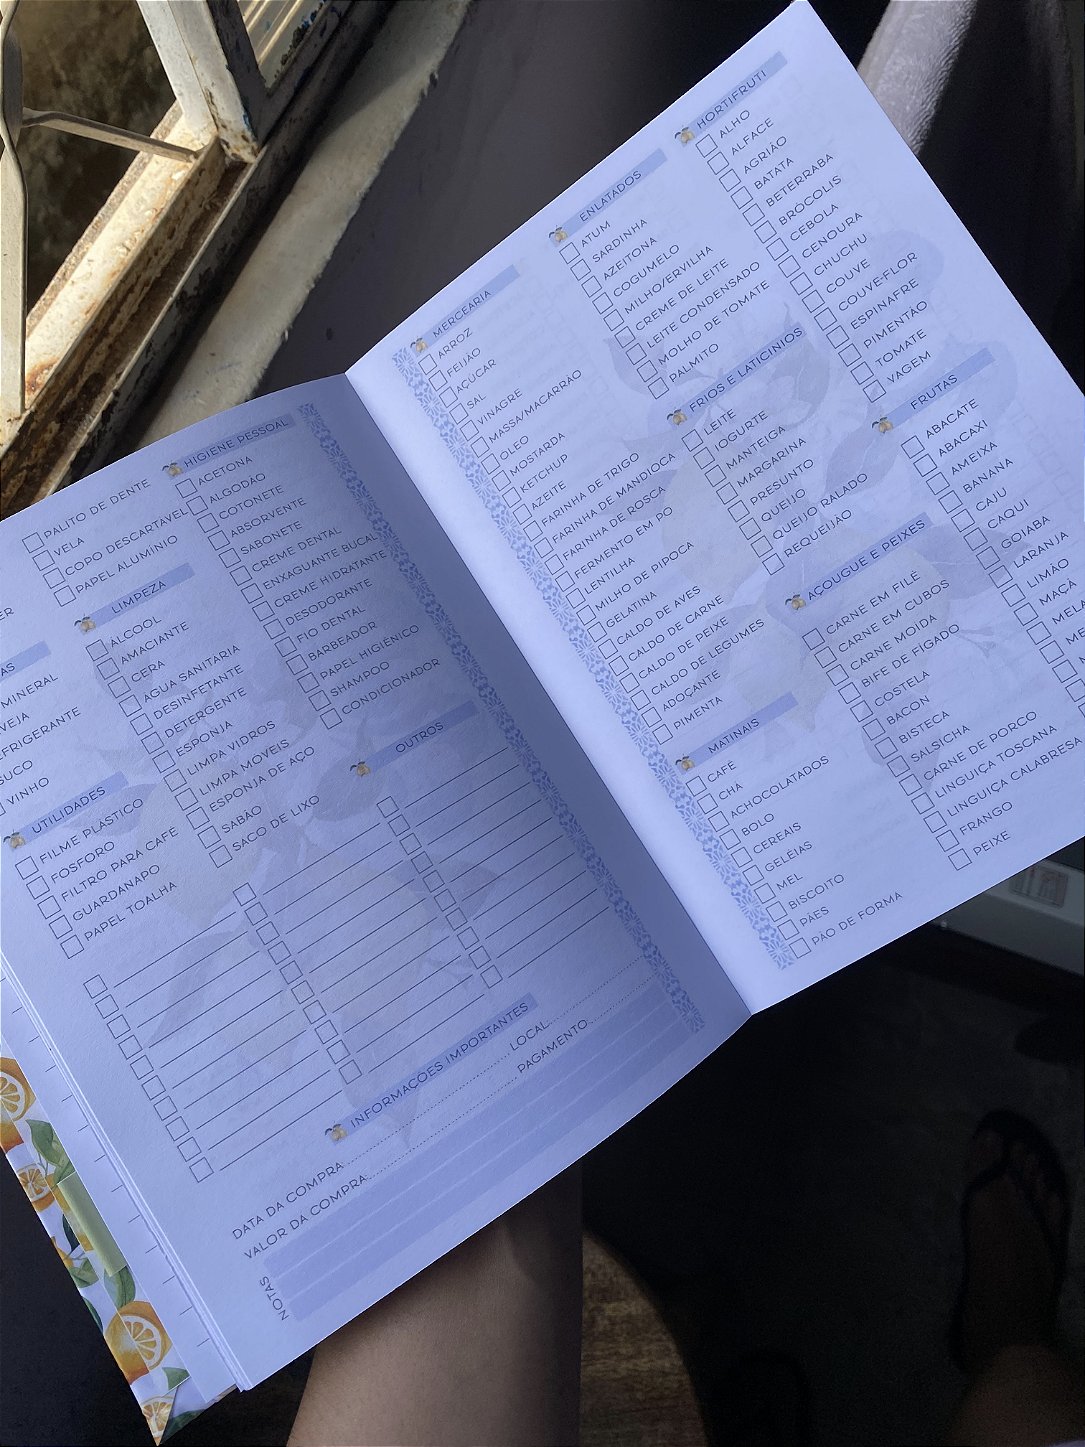 PALITO DE DENTE
VELA
COPO DESCARTÁVEL
PAPEL ALUMÍNIO
MINERAL
SUCO
VINHO
UTILIDADES
FILME PLÁSTICO
FÓSFORO
FILTRO PARA CAFÉ
GUARDANAPO
PAPEL TOALHA
LIMPEZA
ÁLCOOL
AMACIANTE
CERA
ÁGUA SANITÁRIA
DESINFETANTE
DETERGENTE
ESPONJA
LIMPA VIDROS
LIMPA MÓVEIS
ESPONJA DE AÇO
SABÃO
SACO DE LIXO
HIGIENE PESSOAL
ACETONA
ALGODÃO
COTONETE
ABSORVENTE
SABONETE
CREME DENTAL
ENXAGUANTE BUCAL
CREME HIDRATANTE
DESODORANTE
FIO DENTAL
BARBEADOR
PAPEL HIGIÊNICO
SHAMPOO
CONDICIONADOR
OUTROS
INFORMAÇÕES IMPORTANTES
DATA DA COMPRA: LOCAL:
VALOR DA COMPRA: PAGAMENTO:
NOTAS
MERCEARIA
ARROZ
FEIJÃO
AÇÚCAR
SAL
VINAGRE
MASSA/MACARRÃO
ÓLEO
MOSTARDA
KETCHUP
AZEITE
FARINHA DE TRIGO
FARINHA DE MANDIOCA
FARINHA DE ROSCA
FERMENTO EM PÓ
LENTILHA
MILHO DE PIPOCA
GELATINA
CALDO DE AVES
CALDO DE CARNE
CALDO DE PEIXE
CALDO DE LEGUMES
ADOÇANTE
PIMENTA
MATINAIS
CAFÉ
CHÁ
ACHOCOLATADOS
BOLO
CEREAIS
GELÉIAS
MEL
BISCOITO
PÃES
PÃO DE FORMA
ENLATADOS
ATUM
SARDINHA
AZEITONA
COGUMELO
MILHO/ERVILHA
CREME DE LEITE
LEITE CONDENSADO
MOLHO DE TOMATE
PALMITO
FRIOS E LATICÍNIOS
LEITE
IOGURTE
MANTEIGA
MARGARINA
PRESUNTO
QUEIJO
QUEIJO RALADO
REQUEIJÃO
AÇOUGUE E PEIXES
CARNE EM FILÉ
CARNE EM CUBOS
CARNE MOÍDA
BIFE DE FÍGADO
COSTELA
BACON
BISTECA
SALSICHA
CARNE DE PORCO
LINGUIÇA TOSCANA
LINGUIÇA CALABRESA
FRANGO
PEIXE
HORTIFRUTI
ALHO
ALFACE
AGRIÃO
BATATA
BETERRABA
BRÓCOLIS
CEBOLA
CENOURA
CHUCHU
COUVE
COUVE-FLOR
ESPINAFRE
PIMENTÃO
TOMATE
VAGEM
FRUTAS
ABACATE
ABACAXI
AMEIXA
BANANA
CAJU
CAQUI
GOIABA
LARANJA
LIMÃO
MAÇÃ